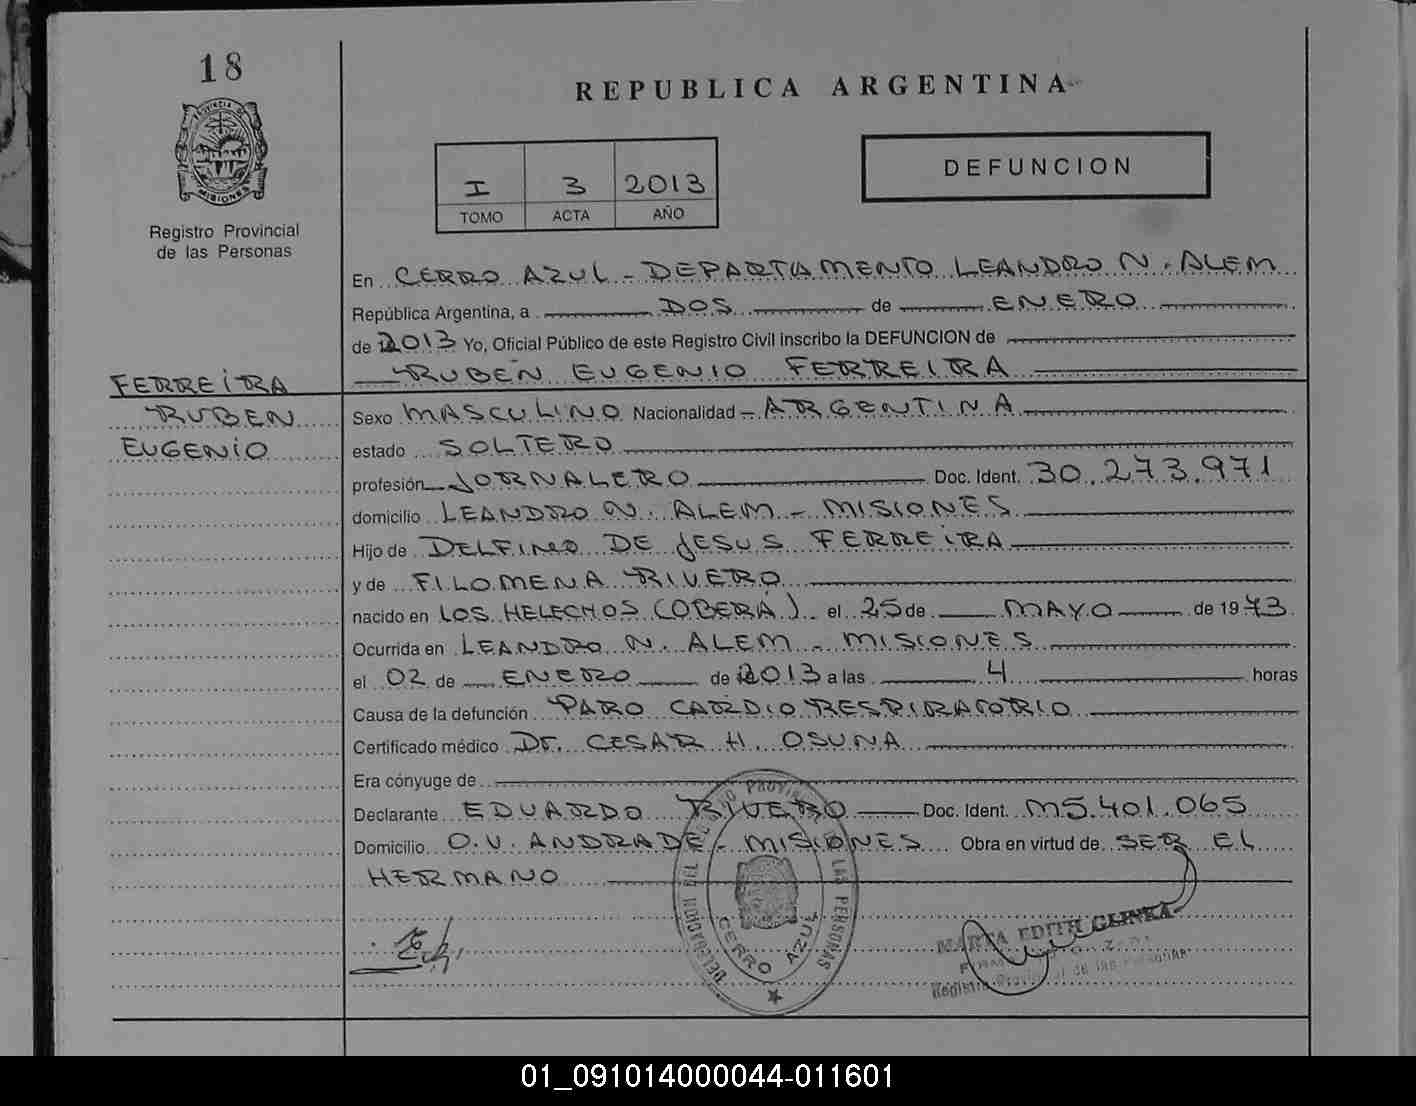 18
REPUBLICA ARGENTINA
DEFUNCION
I 3 2013
TOMO ACTA AÑO
PROVINCIA DE
MISIONES
Registro Provincial
de las Personas
En CERRO AZUL - DEPARTAMENTO LEANDRO N. ALEM
República Argentina, a DOS de ENERO
de 2013 Yo, Oficial Público de este Registro Civil inscribo la DEFUNCION de
RUBEN EUGENIO FERREIRA
FERREIRA
RUBEN
EUGENIO
Sexo MASCULINO Nacionalidad - ARGENTINA
estado SOLTERO
profesión JORNALERO Doc. Ident. 30.273.971
domicilio LEANDRO N. ALEM - MISIONES
Hijo de DELFINO DE JESUS FERREIRA
y de FILOMENA RIVERO
nacido en LOS HELECHOS (OBERÁ) el 25 de MAYO de 1973
Ocurrida en LEANDRO N. ALEM - MISIONES
el 02 de ENERO de 2013 a las 4 horas
Causa de la defunción PARO CARDIO RESPIRATORIO
Certificado médico Dr. CESAR H. OSUNA
Era cónyuge de
Declarante EDUARDO RIVERO Doc. Ident. M5.401.065
Domicilio O.V. ANDRADE - MISIONES Obra en virtud de SER EL
HERMANO
DELEGACION DEL PROVINCIAL LAS PERSONAS
CERRO AZUL
MARTA EDITH GLINKA
Registro Provincial de las Personas
01_091014000044-011601